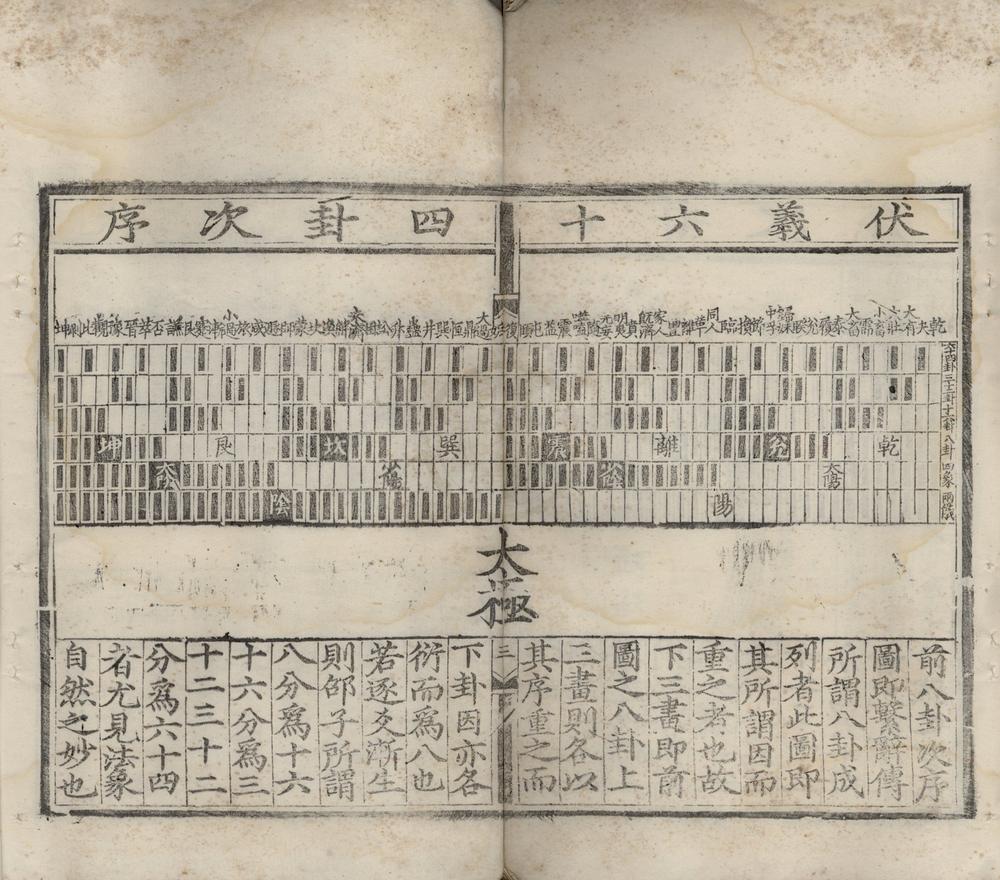 伏羲六十四卦次序
乾 夬 大有 大壯 小畜 需 大畜 泰 履 兌 睽 歸妹 中孚 節 損 臨 同人 革 離 豐 家人 既濟 賁 明夷 无妄 隨 噬嗑 震 益 屯 頤 復 姤 大過 鼎 恒 巽 井 蠱 升 訟 困 未濟 解 渙 坎 蒙 師 遯 咸 旅 小過 漸 蹇 艮 謙 否 萃 晉 豫 觀 比 剝 坤
六十四卦 三十二卦 十六卦 八卦 四象 兩儀
乾 兌 離 震 巽 坎 艮 坤
太陽 少陰 少陽 太陰
陽 陰
太極
前八卦次序
圖即繫辭傳
所謂八卦成
列者此圖即
其所謂因而
重之者也故
下三畫即前
圖之八卦上
三畫則各以
其序重之而
三
下卦因亦各
衍而爲八也
若逐爻漸生
則邵子所謂
八分爲十六
十六分爲三
十二三十二
分爲六十四
者尤見法象
自然之妙也